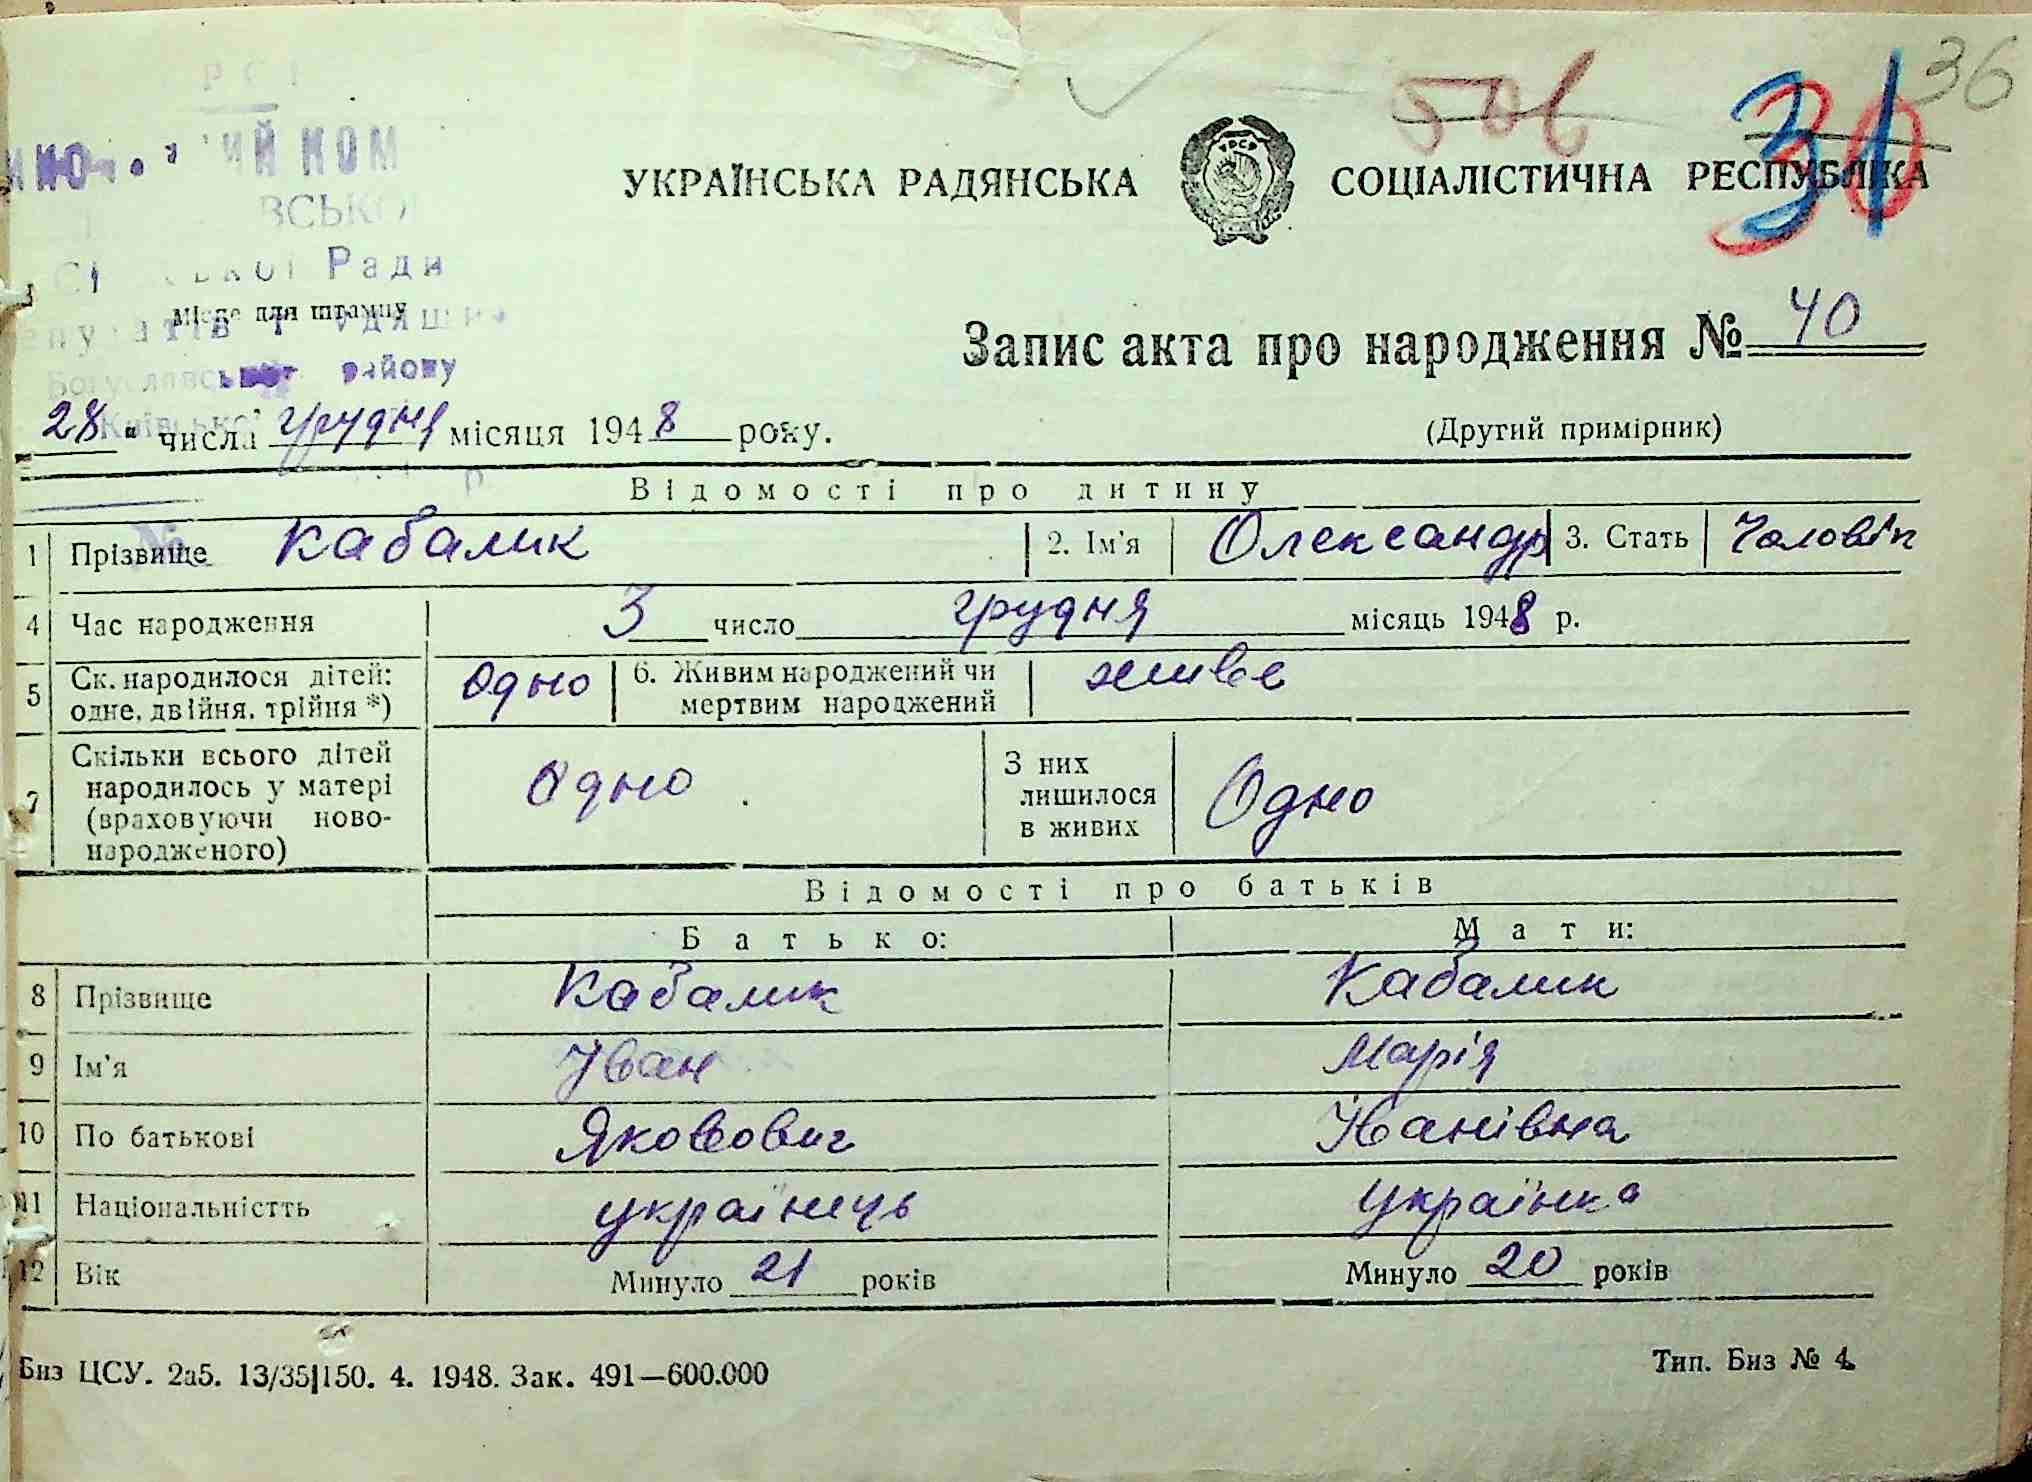 36
506
30
31
ий ком
вської
Ради
УКРАЇНСЬКА РАДЯНСЬКА СОЦІАЛІСТИЧНА РЕСПУБЛІКА
Місце для штампу
Богуславського району
Київської
Запис акта про народження № 40
28 " числа грудня місяця 1948 року.
(Другий примірник)
Відомості про дитину
№
1 Прізвище Кабалик 2. Ім'я Олександр 3. Стать Чоловік
4 Час народження 3 число грудня місяць 1948 р.
5 Ск. народилося дітей: одне, двійня, трійня *) Одно 6. Живим народжений чи мертвим народжений живе
7 Скільки всього дітей народилось у матері (враховуючи новонародженого) Одно З них лишилося в живих Одно
Відомості про батьків
Батько: Мати:
8 Прізвище Кабалик Кабалик
9 Ім'я Іван Марія
10 По батькові Яковович Іванівна
11 Національністть українець українка
12 Вік Минуло 21 років Минуло 20 років
Биз ЦСУ. 2а5. 13/35|150. 4. 1948. Зак. 491—600.000 Тип. Биз № 4.